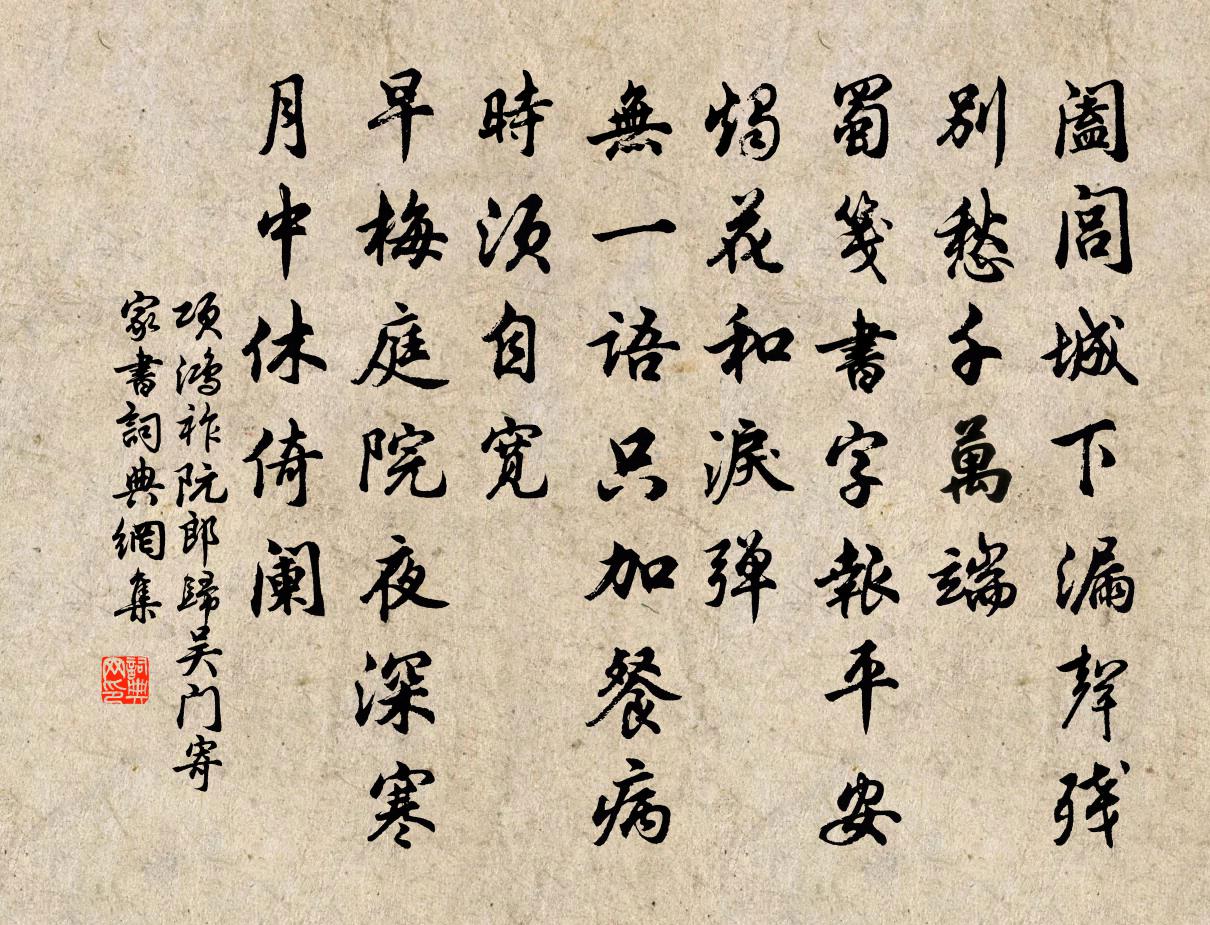 闔閭城下漏聲残
別愁千萬端
蜀箋書字報平安
燭花和淚弹
無一語只加餐病
時須自寬
早梅庭院夜深寒
月中休倚闌
项鴻祚阮郎歸吴门寄
家書詞典網集
詞典网印